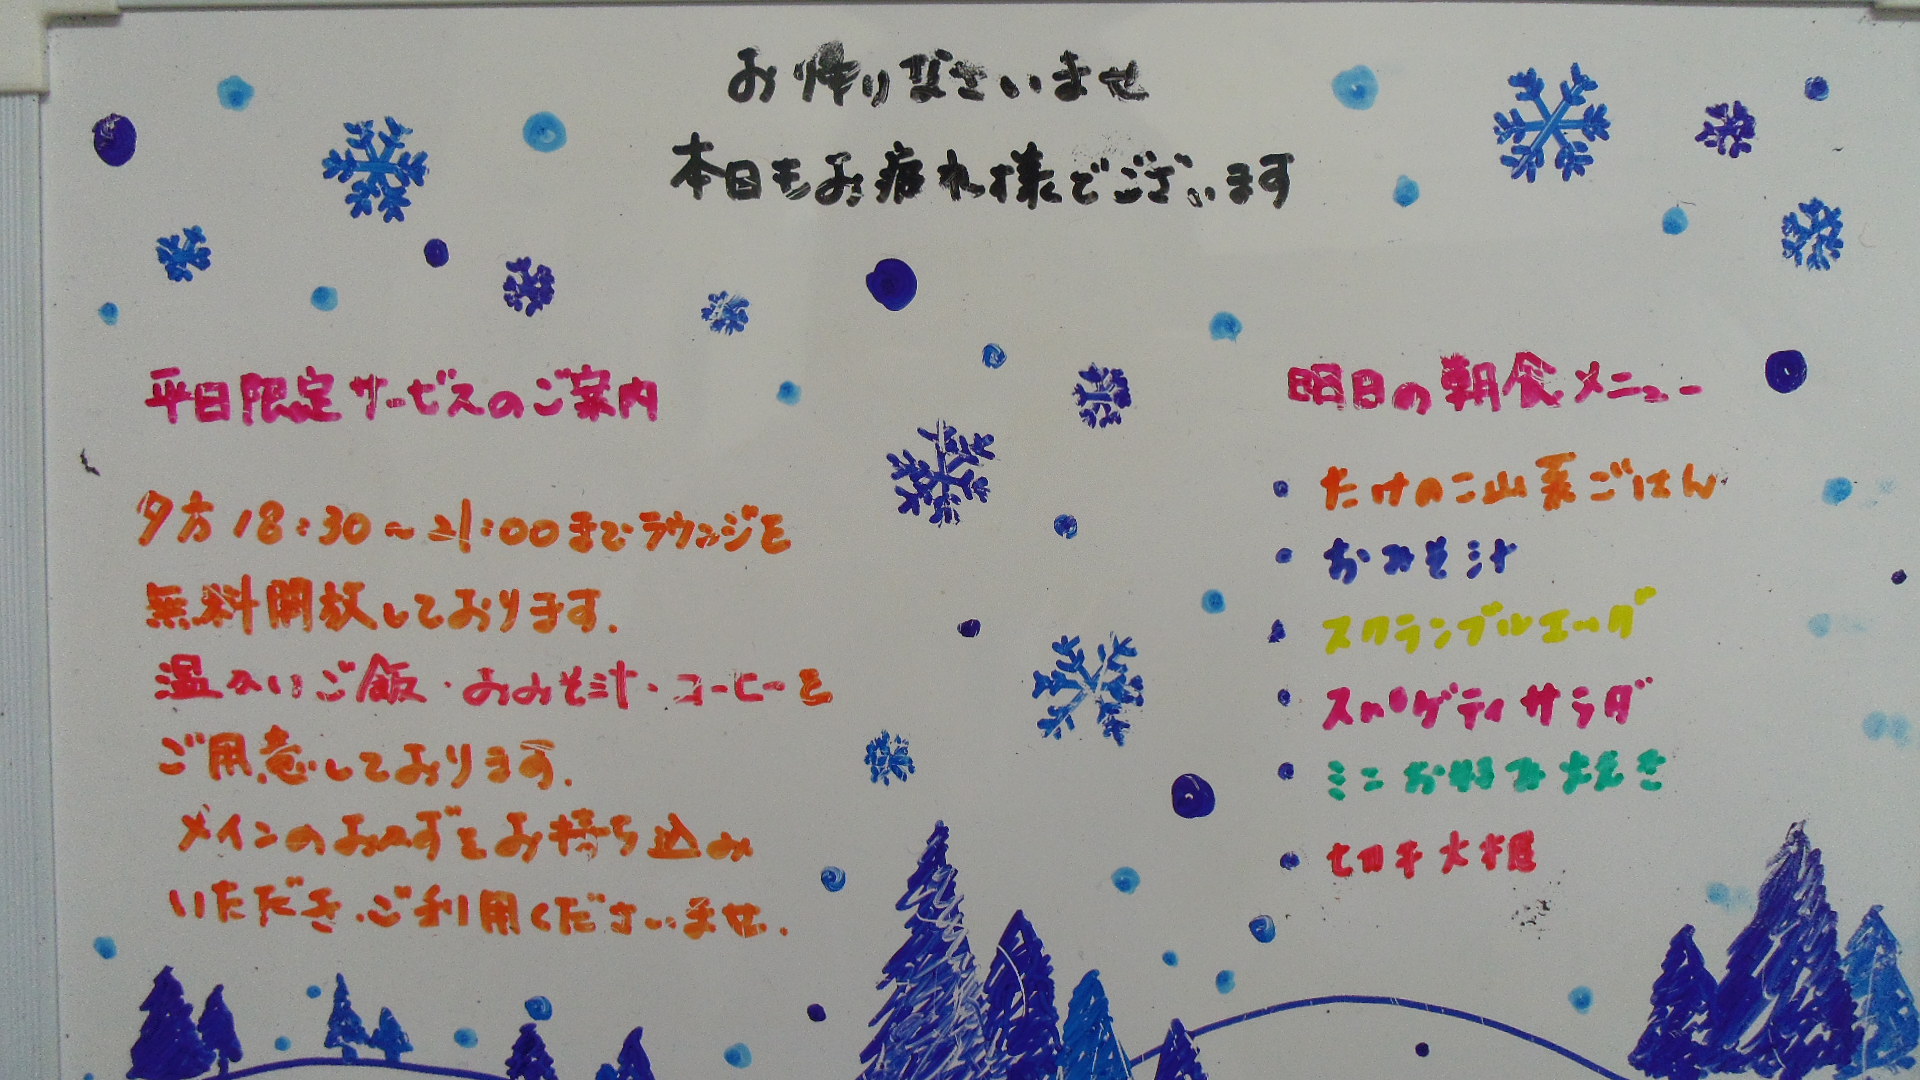 お帰りなさいませ
本日もお疲れ様でございます
平日限定サービスのご案内
夕方18:30~21:00までラウンジを
無料開放しております.
温かいご飯・おみそ汁・コーヒーを
ご用意しております.
メインのおかずをお持ち込み
いただき、ご利用くださいませ.
明日の朝食メニュー
・たけのこ山菜ごはん
・おみそ汁
・スクランブルエッグ
・スパゲティサラダ
・ミニお好み焼き
・切干大根